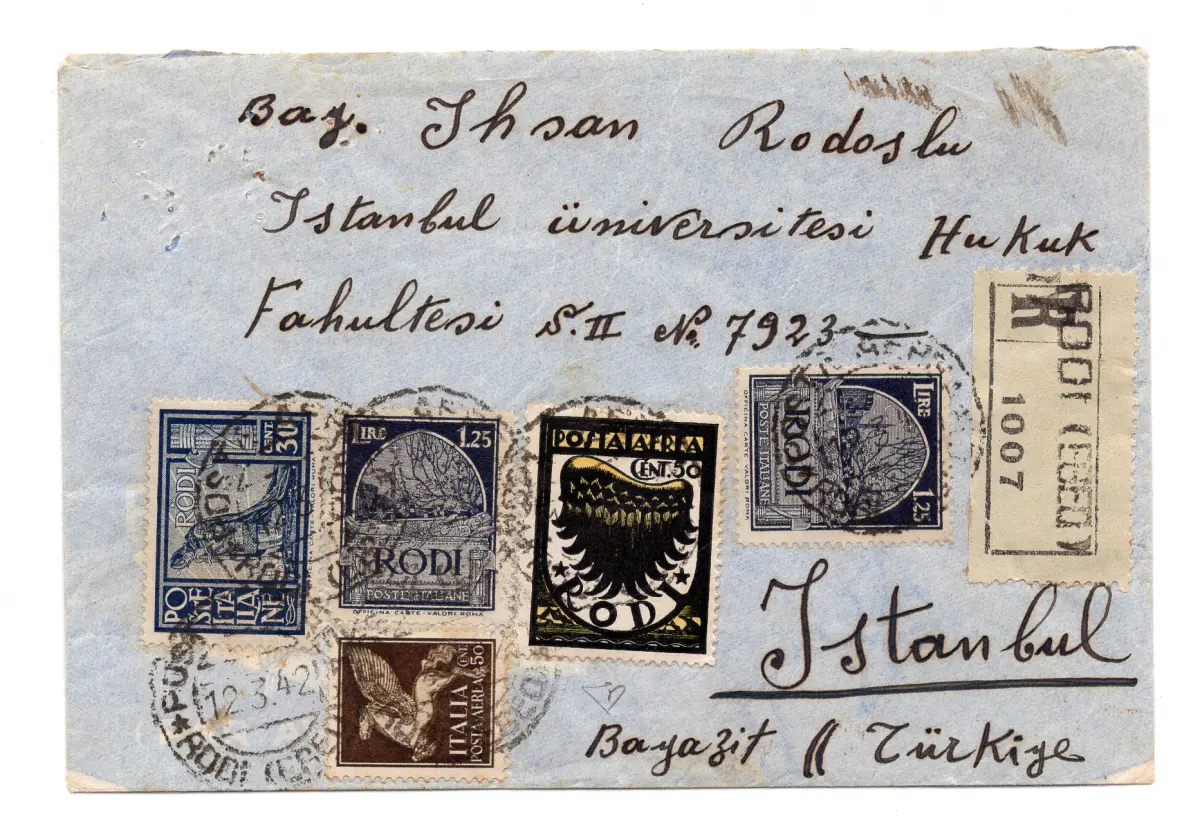 Bay. Ihsan Rodoslu
Istanbul üniversitesi Hukuk
Fahultesi S.II No. 7923
R
RODI (EGEO)
1007
CENT 30
RODI
POSTE ITALIANE
LIRE 1.25
RODI
POSTE ITALIANE
OFFICINA CARTE-VALORI ROMA
POSTA AEREA
CENT. 50
RODI
LIRE 1.25
RODI
POSTE ITALIANE
OFFICINA CARTE VALORI ROMA
ITALIA
POSTA AEREA CENT. 50
12.3.42
RODI
Istanbul
Bayazit // Türkiye